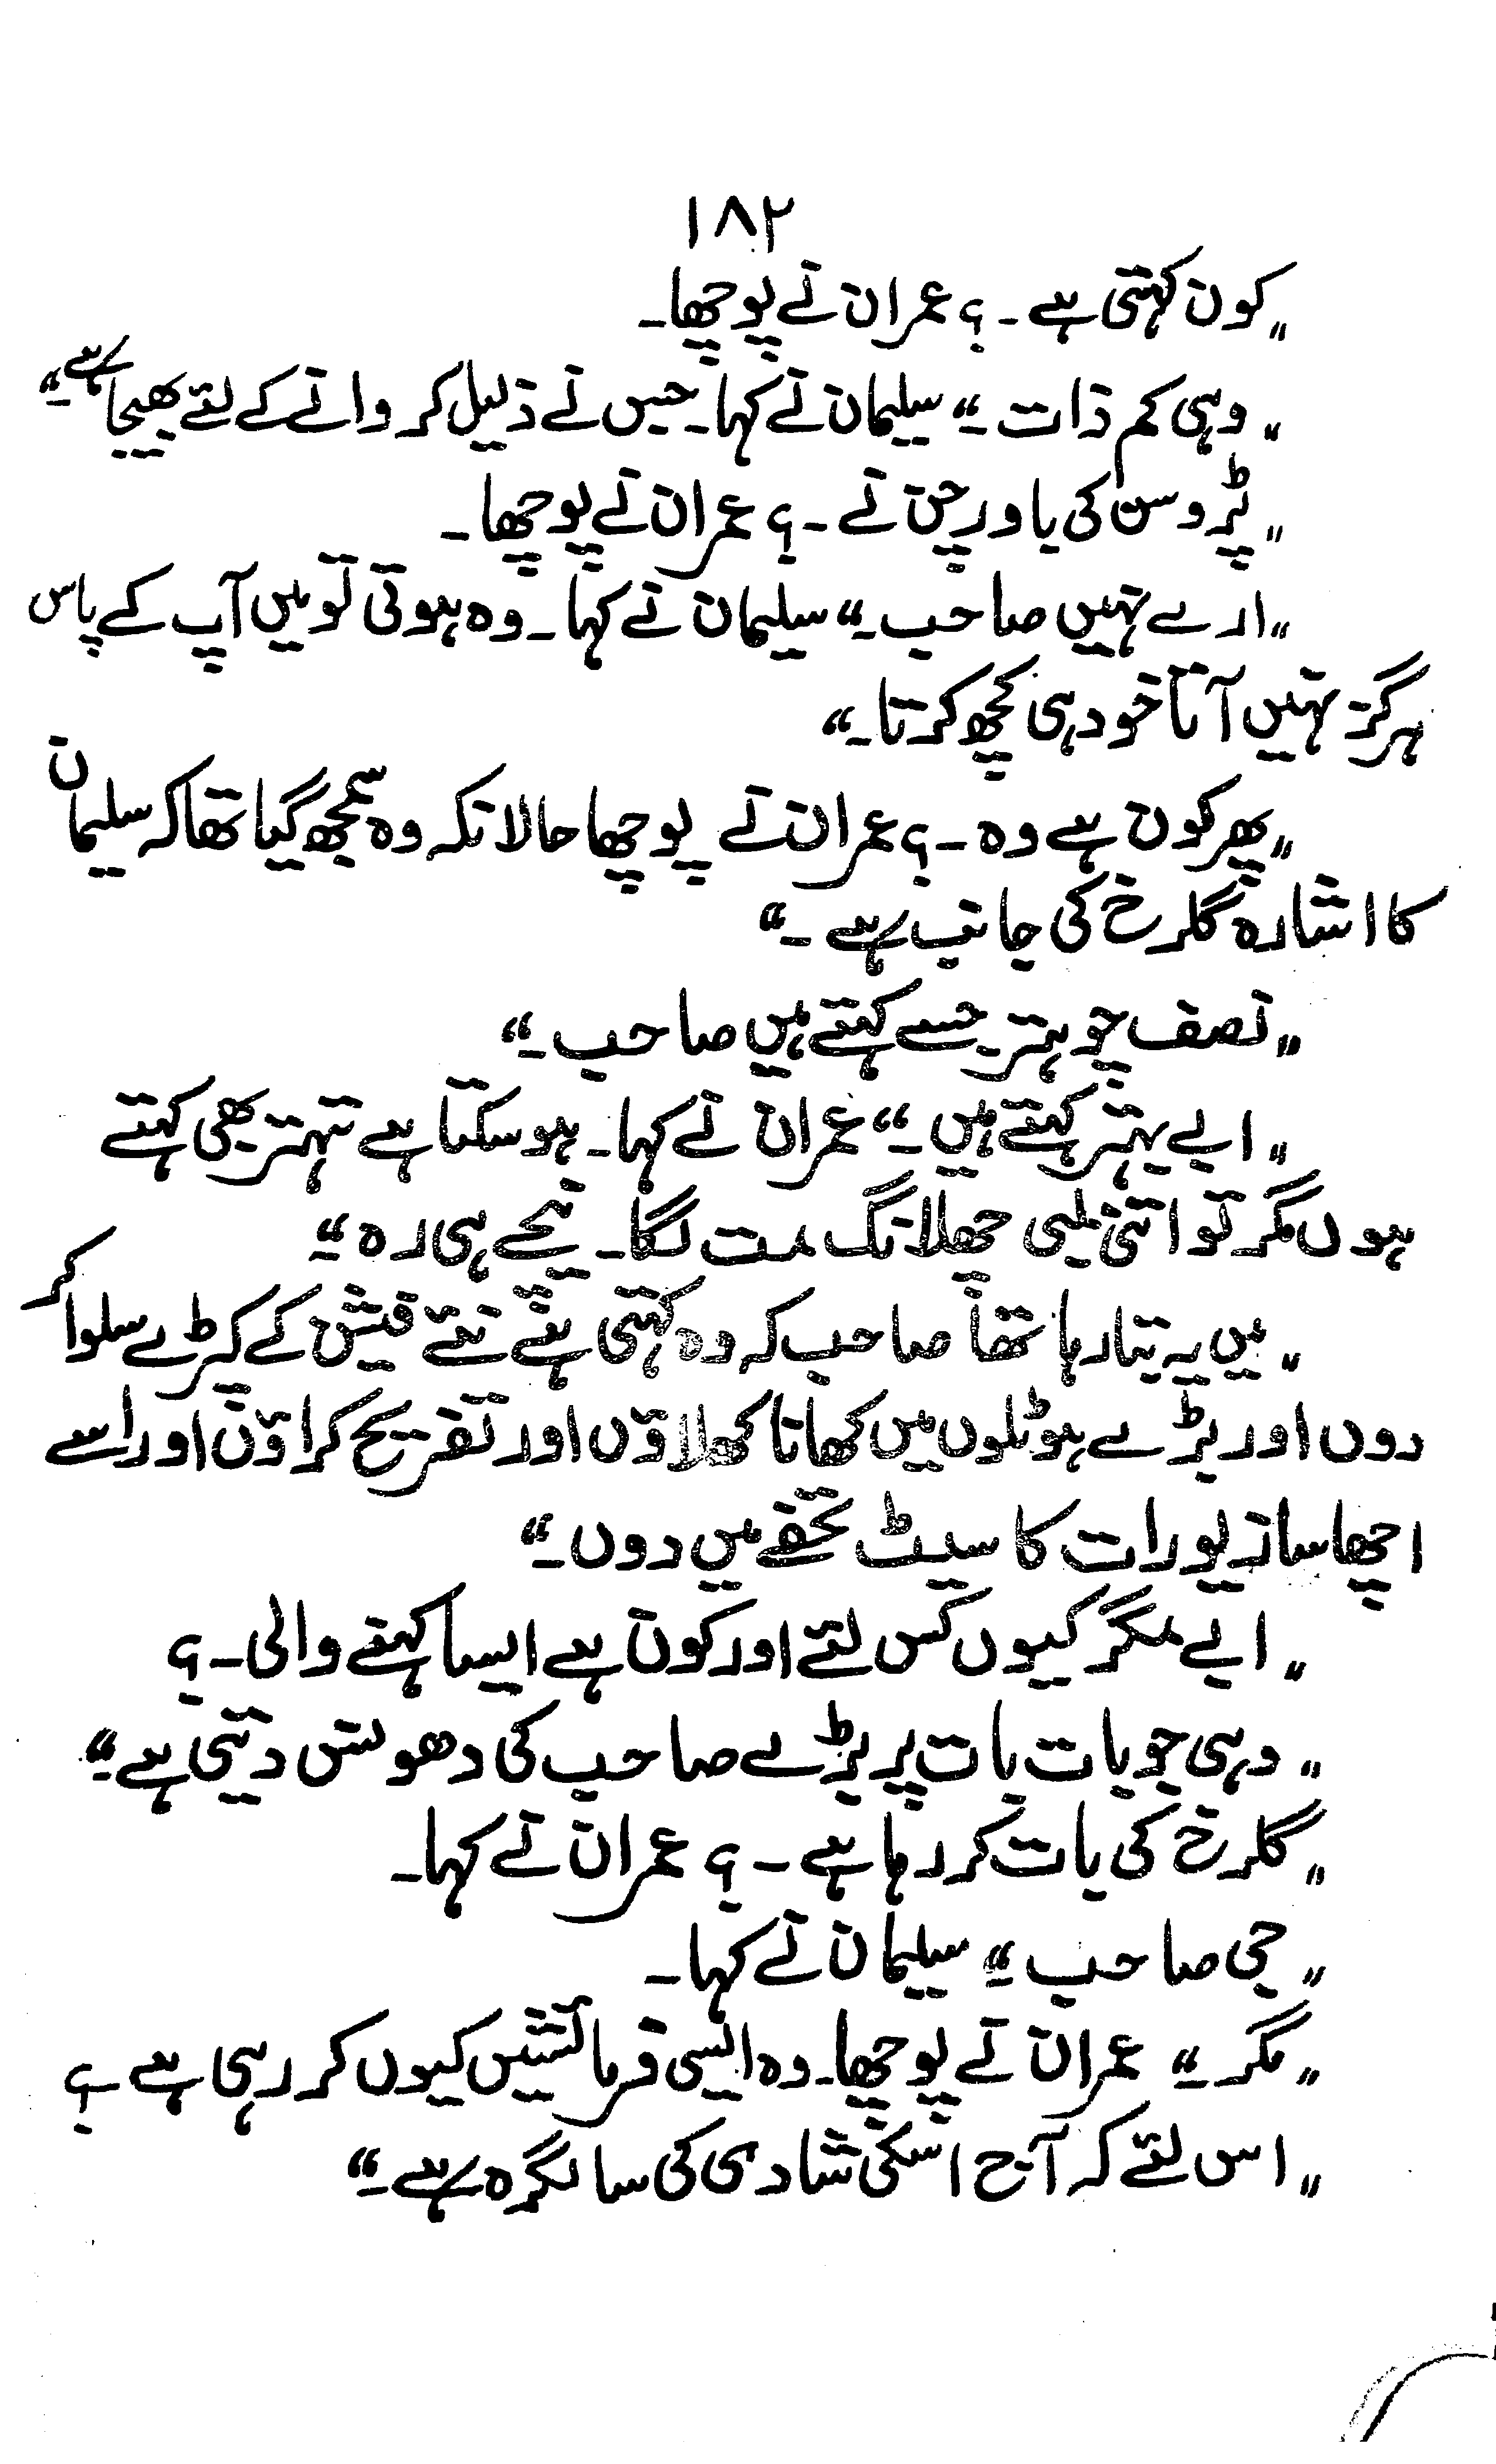 ۱۸۲
"کون کہتی ہے ۔ ؟ عمران نے پوچھا۔
"وہی کم ذات ۔" سلیمان نے کہا۔ جس نے ذلیل کروانے کے لئے بھیجا ہے ۔"
"پڑوسن کی باورچن نے ۔ ؟ عمران نے پوچھا ۔
"ارے نہیں صاحب ۔" سلیمان نے کہا ۔ وہ ہوتی تو میں آپ کے پاس
ہرگز نہیں آتا خود ہی کچھ کرتا ۔"
"پھر کون ہے وہ ۔ ؟ عمران نے پوچھا حالانکہ وہ سمجھ گیا تھا کہ سلیمان
کا اشارہ گلرخ کی جانب ہے ۔"
"نصف جوہتر جسے کہتے ہیں صاحب ۔"
"ابے بہتر کہتے ہیں ۔" عمران نے کہا ۔ ہو سکتا ہے تہتر بھی کہتے
ہوں مگر تو اتنی لمبی چھلانگ مت لگا ۔ نیچے ہی رہ ۔"
"میں یہ بتا رہا تھا صاحب کہ وہ کہتی ہے نئے فیشن کے کپڑے سلوا کر
دوں اور بڑے ہوٹلوں میں کھانا کھلاؤں اور تفریح کراؤں اور اسے
اچھا سا زیورات کا سیٹ تحفے میں دوں ۔"
"ابے مگر کیوں کس لئے اور کون ہے ایسا کہنے والی ۔ ؟
"وہی جو بات بات پر بڑے صاحب کی دھونس دیتی ہے ۔"
"گلرخ کی بات کر رہا ہے ۔ ؟ عمران نے کہا ۔
"جی صاحب ۔" سلیمان نے کہا ۔
"مگر ۔" عمران نے پوچھا ۔ وہ ایسی فرمائشیں کیوں کر رہی ہے ۔ ؟
"اس لئے کہ آج اسکی شادی کی سالگرہ ہے ۔"